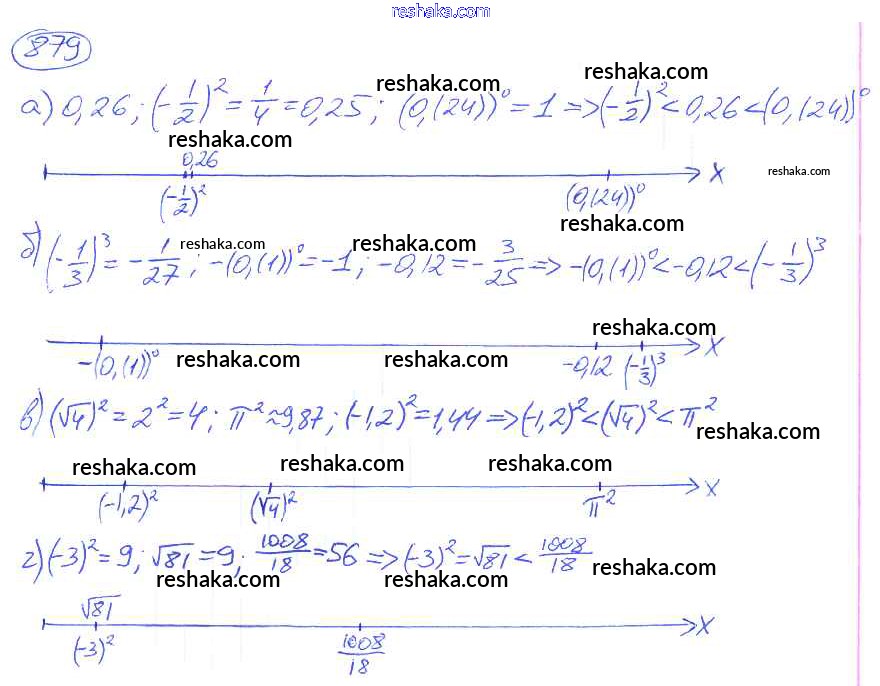 reshaka.com
879
reshaka.com reshaka.com
а) 0,26; (-1/2)² = 1/4 = 0,25; (0,(24))⁰ = 1 => (-1/2)² < 0,26 < (0,(24))⁰
reshaka.com
0,26
x reshaka.com
(-1/2)² (0,(24))⁰
reshaka.com
б) (-1/3)³ = -1/27; -(0,(1))⁰ = -1; -0,12 = -3/25 => -(0,(1))⁰ < -0,12 < (-1/3)³
reshaka.com reshaka.com
reshaka.com
x
-(0,(1))⁰ reshaka.com reshaka.com -0,12 (-1/3)³
в) (√4)² = 2² = 4; π² ≈ 9,87; (-1,2)² = 1,44 => (-1,2)² < (√4)² < π²
reshaka.com
reshaka.com reshaka.com reshaka.com
x
(-1,2)² (√4)² π²
г) (-3)² = 9; √81 = 9; 1008/18 = 56 => (-3)² = √81 < 1008/18
reshaka.com reshaka.com reshaka.com
√81
x
(-3)² 1008/18